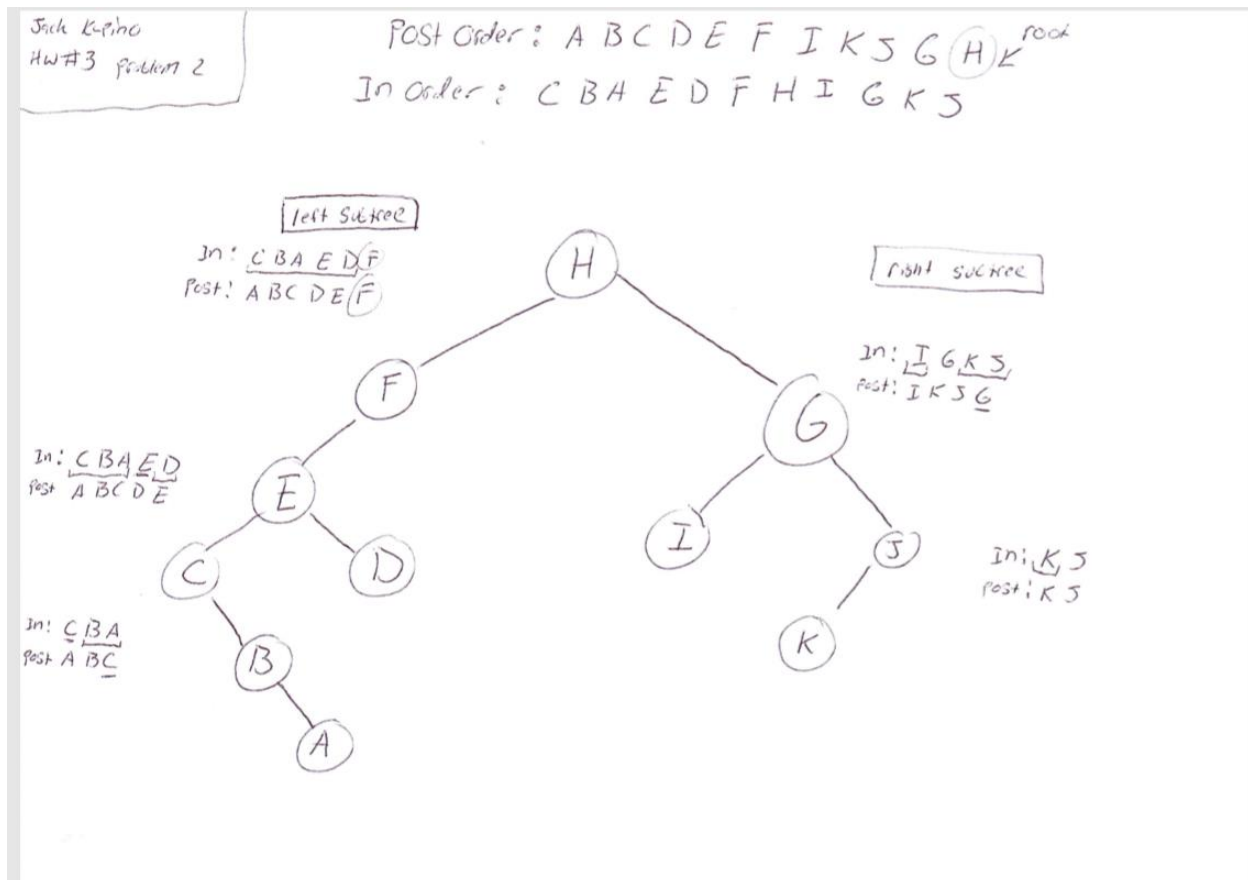 HW#3 problem 2
Post Order: A B C D E F I K J G H root
In Order: C B A E D F H I G K J
left subtree
In: C B A E D F
Post: A B C D E F
H
right subtree
In: I G K J
Post: I K J G
F
G
In: C B A E D
Post A B C D E
E
I
J
In: K J
Post: K J
C
D
In: C B A
Post A B C
B
K
A